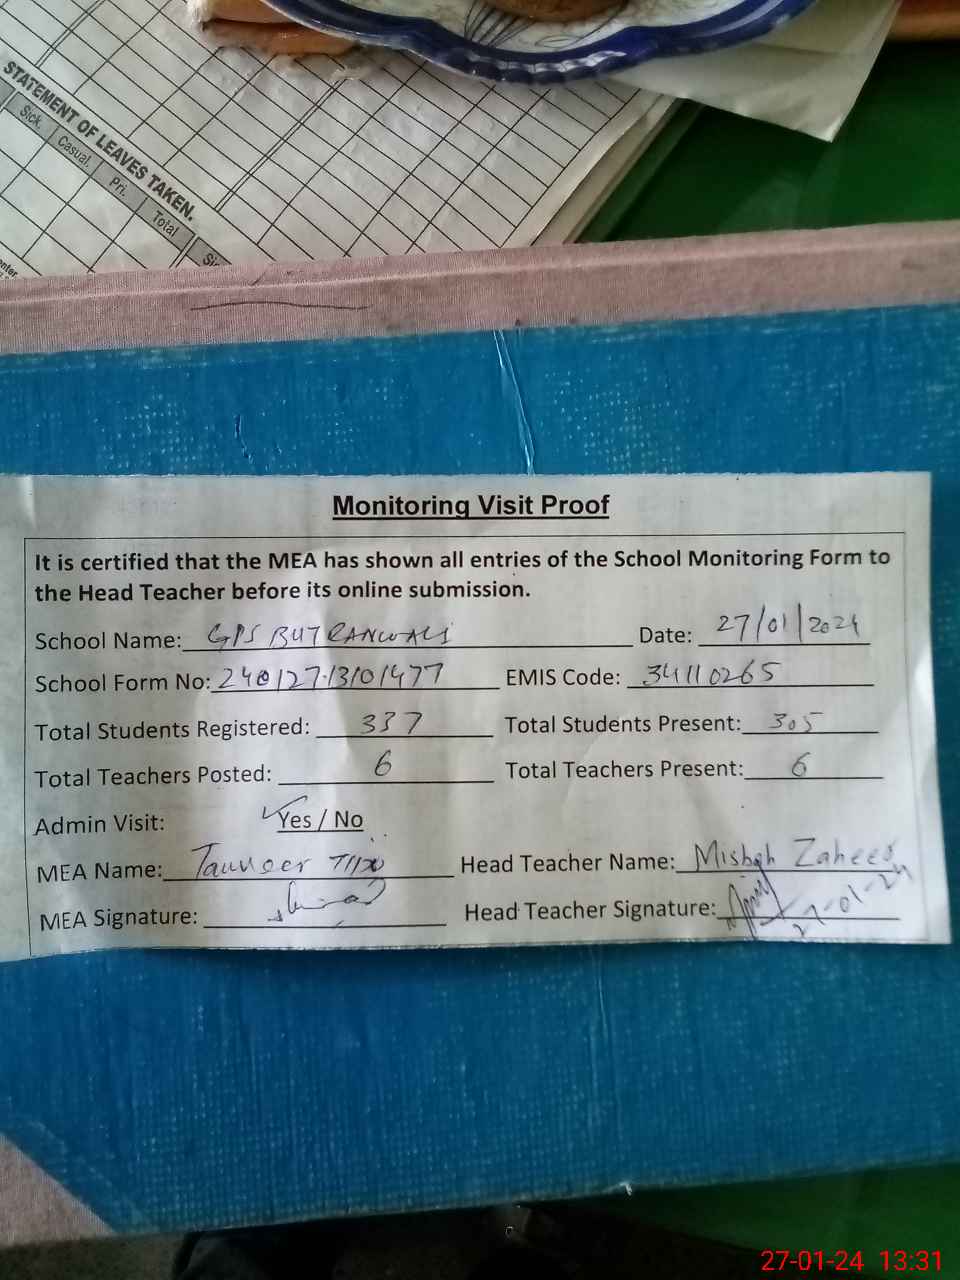 STATEMENT OF LEAVES TAKEN.
Sick. Casual. Pri. Total
Monitoring Visit Proof
It is certified that the MEA has shown all entries of the School Monitoring Form to
the Head Teacher before its online submission.
School Name: GPS BUTRANWALI Date: 27/01/2024
School Form No: 240127-13101477 EMIS Code: 34110265
Total Students Registered: 337 Total Students Present: 305
Total Teachers Posted: 6 Total Teachers Present: 6
Admin Visit: Yes / No
MEA Name: Tauveer Head Teacher Name: Misbah Zaheer
MEA Signature: Head Teacher Signature: 27-01-24
27-01-24 13:31